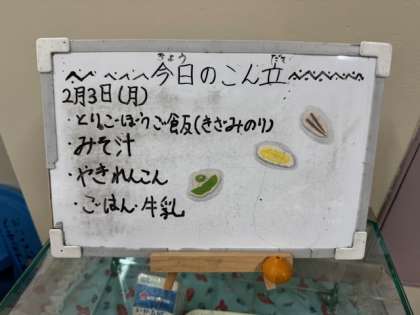 今日のこん立
きょう だて
2月3日(月)
・とりごぼうご飯(きざみのり)
・みそ汁
・やきれんこん
・ごはん・牛乳